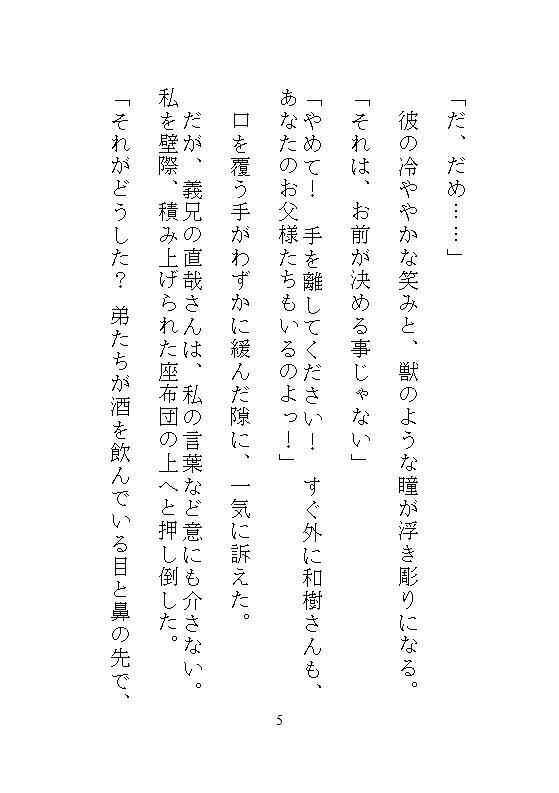 「だ、だめ……」
　彼の冷ややかな笑みと、獣のような瞳が浮き彫りになる。
「それは、お前が決める事じゃない」
「やめて！　手を離してください！　すぐ外に和樹さんも、
あなたのお父様たちもいるのよっ！」
　口を覆う手がわずかに緩んだ隙に、一気に訴えた。
　だが、義兄の直哉さんは、私の言葉など意にも介さない。
私を壁際、積み上げられた座布団の上へと押し倒した。
「それがどうした？　弟たちが酒を飲んでいる目と鼻の先で、
5